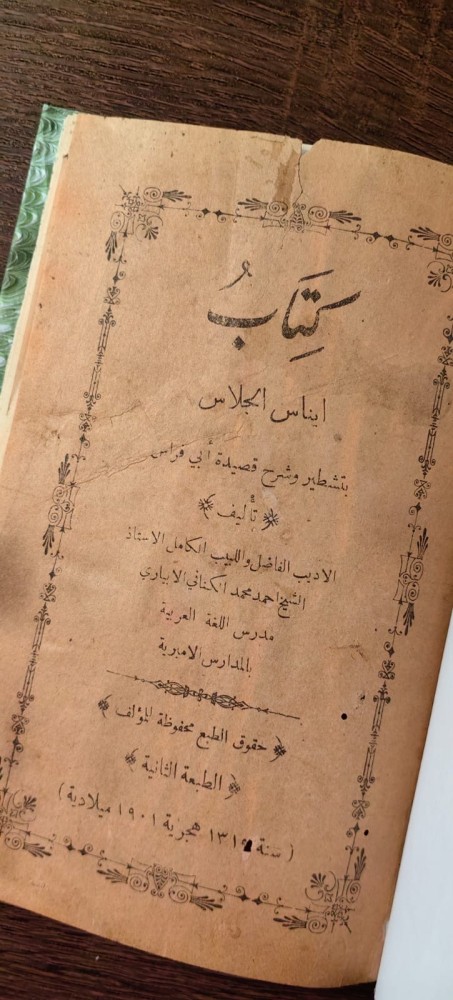 كِتَابُ
ايناس الجلاس
بتشطير وشرح قصيدة أبي فراس
تأليف
الاديب الفاضل واللبيب الكامل الاستاذ
الشيخ احمد محمد الكناني الابياري
مدرس اللغة العربية
بالمدارس الاميرية
حقوق الطبع محفوظة للمؤلف
الطبعة الثانية
( سنة ١٣١٩ هجرية ١٩٠١ ميلادية )